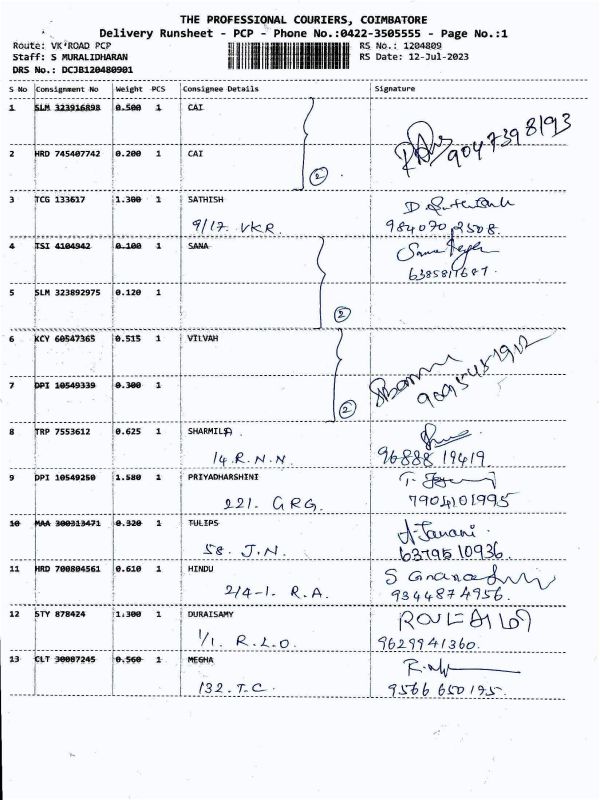 THE PROFESSIONAL COURIERS, COIMBATORE
Delivery Runsheet - PCP - Phone No.:0422-3505555 - Page No.:1
Route: VK ROAD PCP RS No.: 1204809
Staff: S MURALIDHARAN RS Date: 12-Jul-2023
DRS No.: DCJB120480901
S No Consignment No Weight PCS Consignee Details Signature
1 SLM 323916898 0.500 1 CAI
9047398193
2 HRD 745407742 0.200 1 CAI
2
3 TCG 133617 1.300 1 SATHISH
9/17. VKR. 984070 2508.
4 TSI 4104942 0.100 1 SANA
6385811687
5 SLM 323892975 0.120 1
2
6 KCY 60547365 0.515 1 VILVAH
9095451912
7 DPI 10549339 0.300 1
2
8 TRP 7553612 0.625 1 SHARMILA
14. R.N.N. 96888 19419.
9 DPI 10549250 1.580 1 PRIYADHARSHINI
221. GRG. 7904101995
10 MAA 300313471 0.320 1 TULIPS
A. Janani.
58. J.N. 6379510936.
11 HRD 700804561 0.610 1 HINDU
2/4-1. R.A. 9344874956.
12 STY 878424 1.300 1 DURAISAMY
1/1. R.L.O. 9629941360.
13 CLT 30087245 0.560 1 MEGHA
132. T.C. 9566 650195.